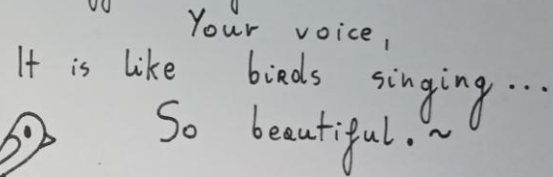 Your voice,
It is like birds singing...
So beautiful. ~